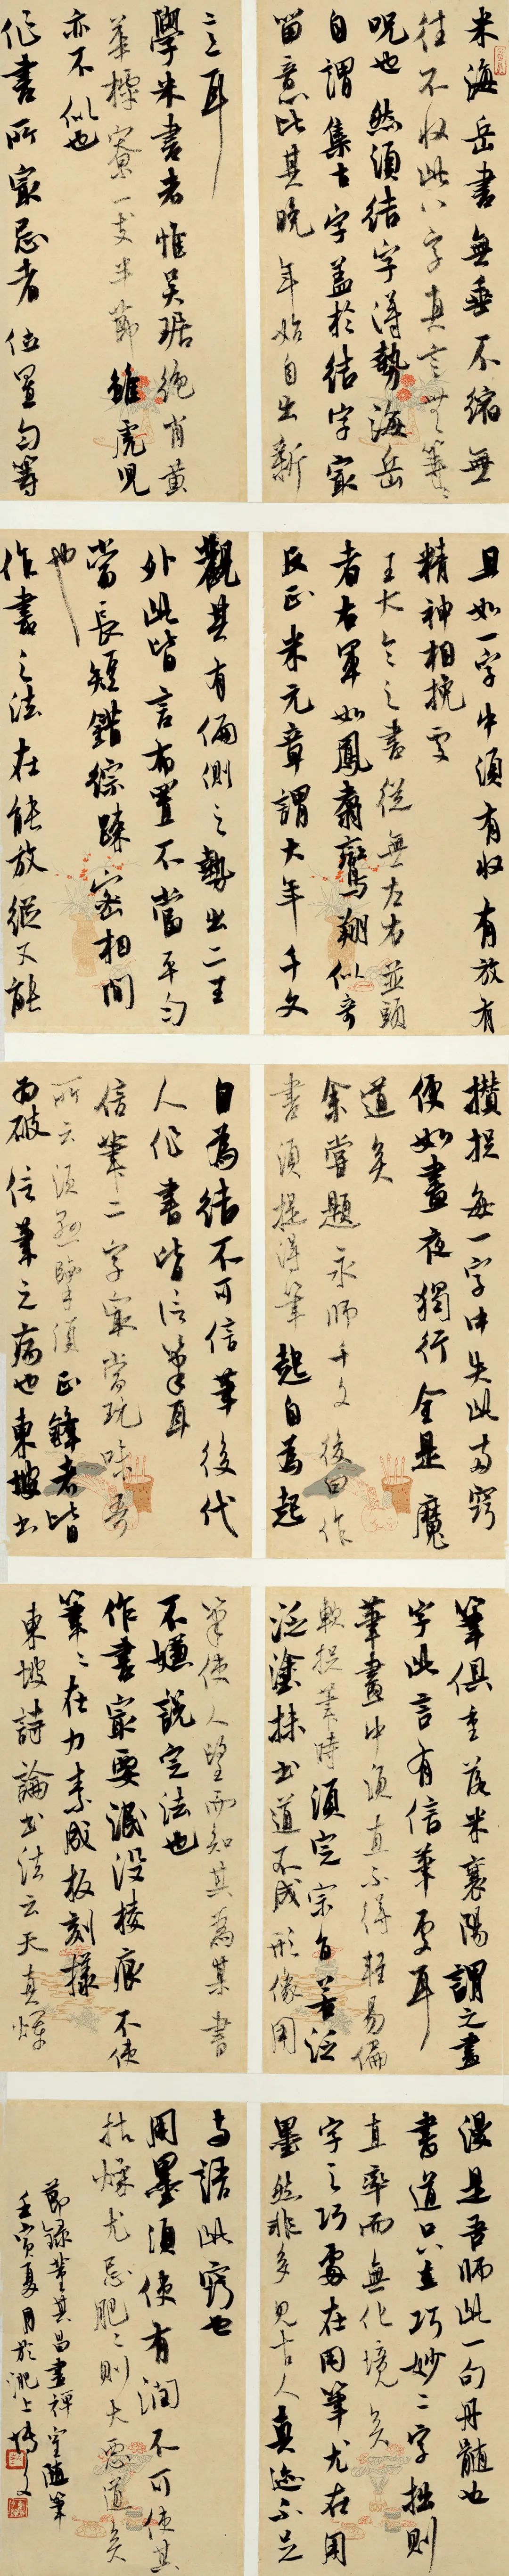 米海岳書無垂不縮無
往不收此八字真言無等
呪也然須結字得勢海岳
自謂集古字蓋於結字最
留意比其晚年始自出新
意耳
學米書者惟吳琚絕肖黃
華樗寮一支半節雖虎兒
亦不似也
作書所最忌者位置勻等
且如一字中須有收有放有
精神相挽處
王大令之書從無左右並頭
者右軍如鳳翥鸞翔似奇
反正米元章謂大年千文
觀其有偏側之勢出二王
外此皆言布置不當平勻
當長短錯綜疎密相間
也
作書之法在能放縱又能
攢捉每一字中失此兩竅
便如晝夜獨行全是魔
道矣
余嘗題永師千文後曰作
書須提得筆起自為起
自為結不可信筆後代
人作書皆信筆耳
信筆二字最當玩味吾
所云須懸腕須正鋒者皆
為破信筆之病也東坡書
筆俱重落米襄陽謂之畫
字此言有信筆處耳
筆畫中須直不得輕易偏
軟捉筆時須定宗旨若泛
泛塗抹書道不成形像用
筆使人望而知其為某書
不嫌說定法也
作書最要泯沒棱痕不使
筆筆在力素成板刻樣
東坡詩論書法云天真爛
漫是吾師此一句丹髓也
書道只在巧妙二字拙則
直率而無化境矣
字之巧處在用筆尤在用
墨然非多見古人真迹不足
與語此竅也
用墨須使有潤不可使其
枯燥尤忌肥肥則大惡道矣
節錄董其昌畫禪室隨筆
壬寅夏月於淝上